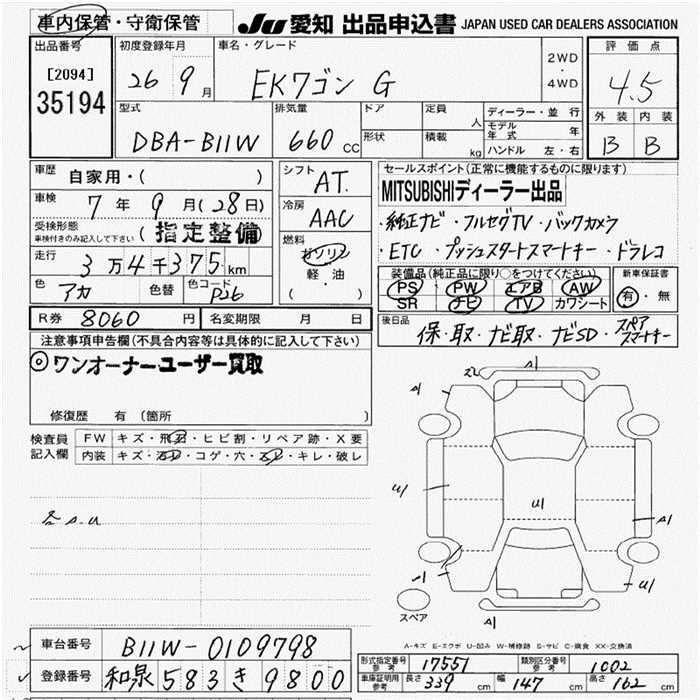 車内保管・守衛保管 JU 愛知 出品申込書 JAPAN USED CAR DEALERS ASSOCIATION
出品番号
[2094]
35194
初度登録年月
26 9月
車名・グレード
EKワゴン G
2WD
・
4WD
評価点
4.5
外装 内装
B B
型式
DBA-B11W
排気量
660cc
ドア
形状
定員 人
積載 kg
ディーラー・並行
モデル年式 年
ハンドル 左・右
車歴
自家用・( )
車検
7年9月(28日)
受検形態
車検付きのみ記入して下さい
(指定整備)
走行
3万4千375km
色 アカ 色替 色コード P26
シフト
AT.
冷房
AAC
燃料
ガソリン
軽・油
( )
セールスポイント(正常に機能するものに限ります)
MITSUBISHIディーラー出品
・純正ナビ・フルセグTV・バックカメラ
・ETC・プッシュスタートスマートキー・ドラレコ
装備品(純正品に限り○をつけてください)
PS PW エアB AW
SR ナビ TV カワシート
新車保証書
有・無
R券 8060円 名変期限 月 日
後日品
保・取・ナビ取・ナビSD・スペアスマートキー
注意事項申告欄(不具合内容等は具体的に記入して下さい)
◎ワンオーナーユーザー買取
修復歴 有(箇所 )
検査員記入欄
FW キズ・飛石・ヒビ割・リペア跡・X要
内装 キズ・汚レ・コゲ・穴・スレ・キレ・破レ
各A・U
A1
A1
U1
U1
A1
U1
A1
スペア
A-キズ E-エクボ U-凹み W-補修跡 S-サビ C-腐食 XX-交換済
車台番号 B11W-0109798
登録番号 和泉 583 き 9800
形式指定番号 参考 17551 類別区分番号 参考 1002
車庫証明用 参考 長さ 339cm 幅 147cm 高さ 162cm